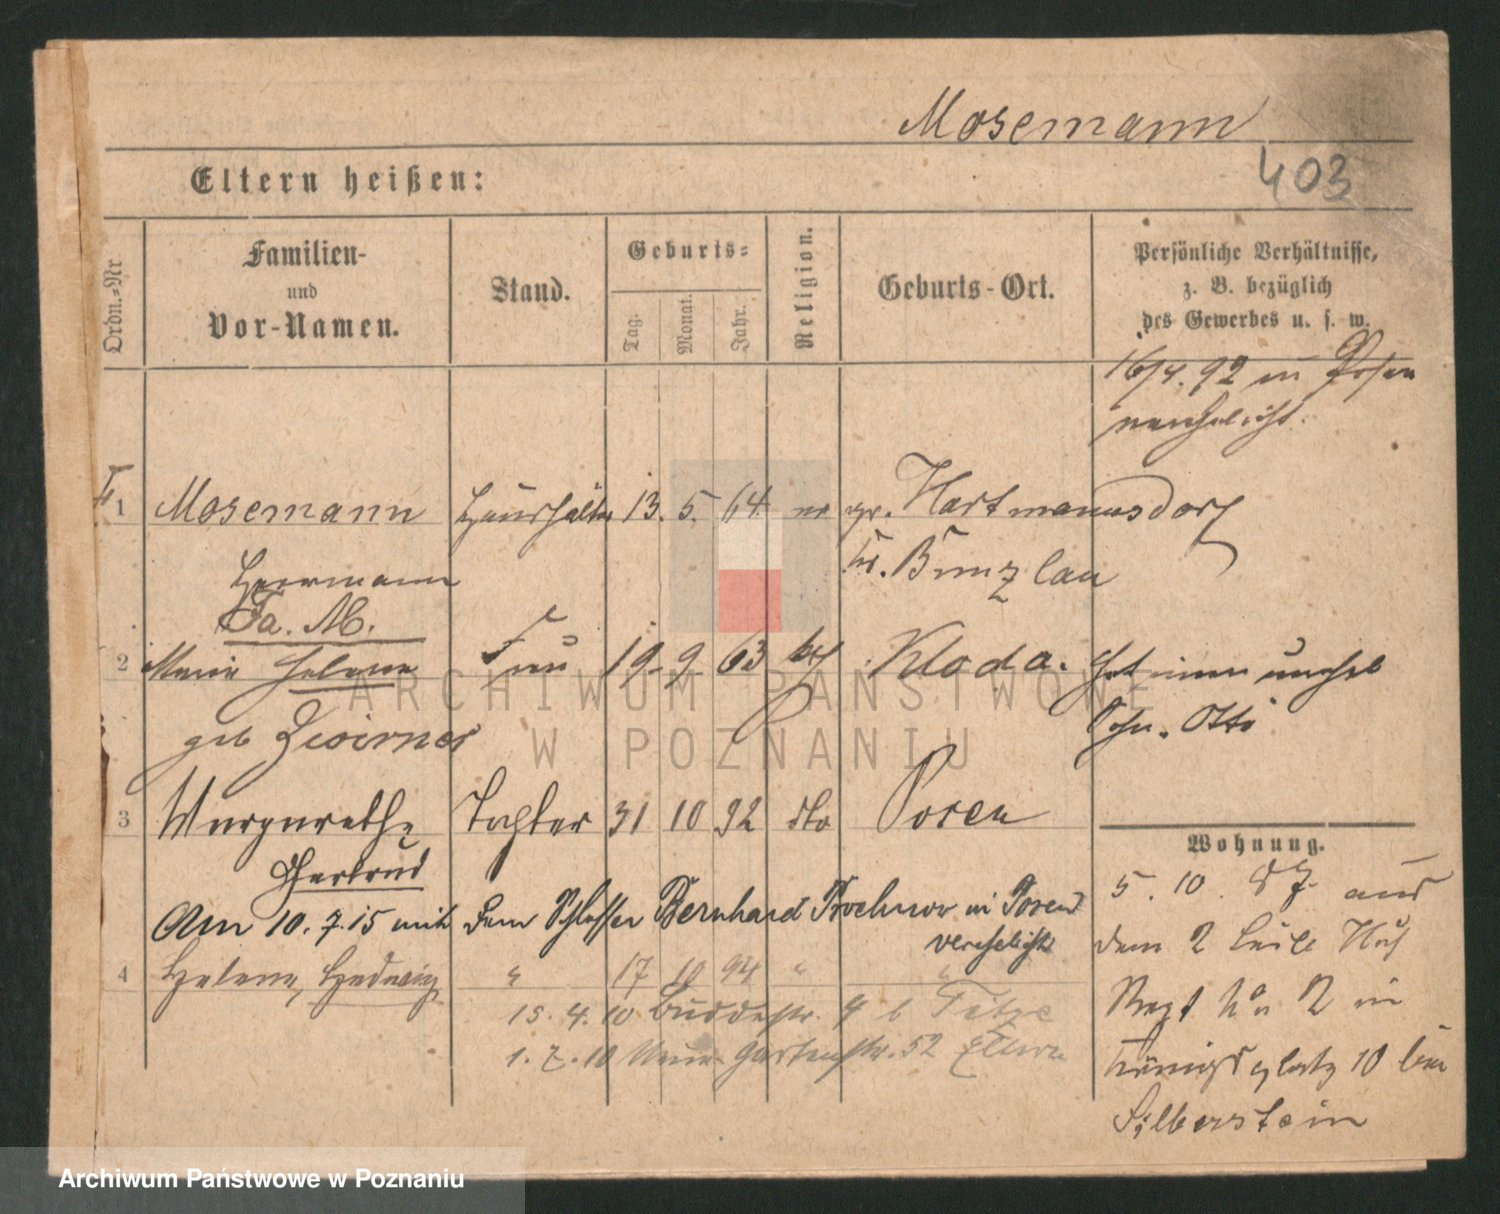 Mosemann
403
Eltern heißen:
Ordn.-Nr
Familien-
und
Vor-Namen.
Stand.
Geburts-
Tag.
Monat.
Jahr.
Religion.
Geburts-Ort.
Persönliche Verhältnisse,
z. B. bezüglich
des Gewerbes u. s. w.
16/4. 92 in Posen
verehelicht.
1 Mosemann Haushälter 13. 5. 64 ev gr. Hartmannsdorf
Herrmann Kr. Bunzlau
Fa. M.
2 Maria Helene Frau 19. 9. 63 Kloda. Hat einen unehel
geb Zwirner Sohn. Otto
3 Margarethe Tochter 31 10 92 dto Posen
Gertrud
Wohnung.
Am 10. 7. 15 mit dem Schlosser Bernhard Prochnow in Posen
verehelicht
5. 10. 87 aus
dem 2 Leib Hus
4 Helene, Hedwig " 17 10 94 " "
15. 4. 10 Buddestr. 4 b Titze
Regt No 2 in
1. 7. 10 Neue Gartenstr. 52 Eltern
Königsplatz 10 bei
Silberstein
ARCHIWUM PAŃSTWOWE
W POZNANIU
Archiwum Państwowe w Poznaniu